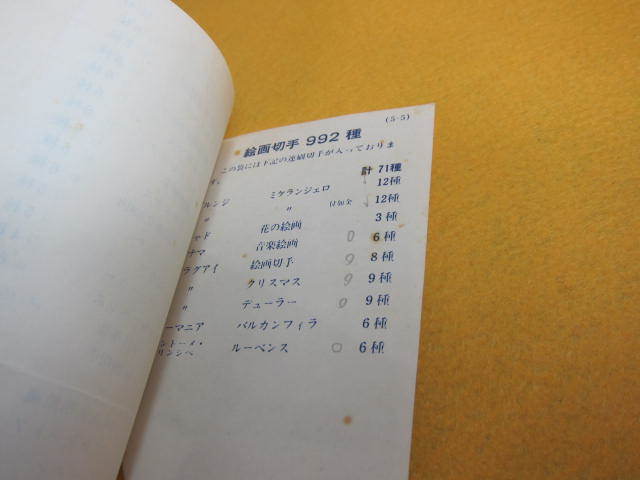 (5-5)
絵画切手 992 種
この袋には下記の連刷切手が入っておりま
す。
計 71種
ルンジ ミケランジェロ 12種
〃 〃 付加金 12種
マド 花の絵画 3種
ナマ 音楽絵画 0 6種
ラグアイ 絵画切手 9 8種
〃 クリスマス 9 9種
〃 デューラー 0 9種
ーマニア バルカンフィラ 6種
ントーメ・
リンシペ ルーベンス 0 6種